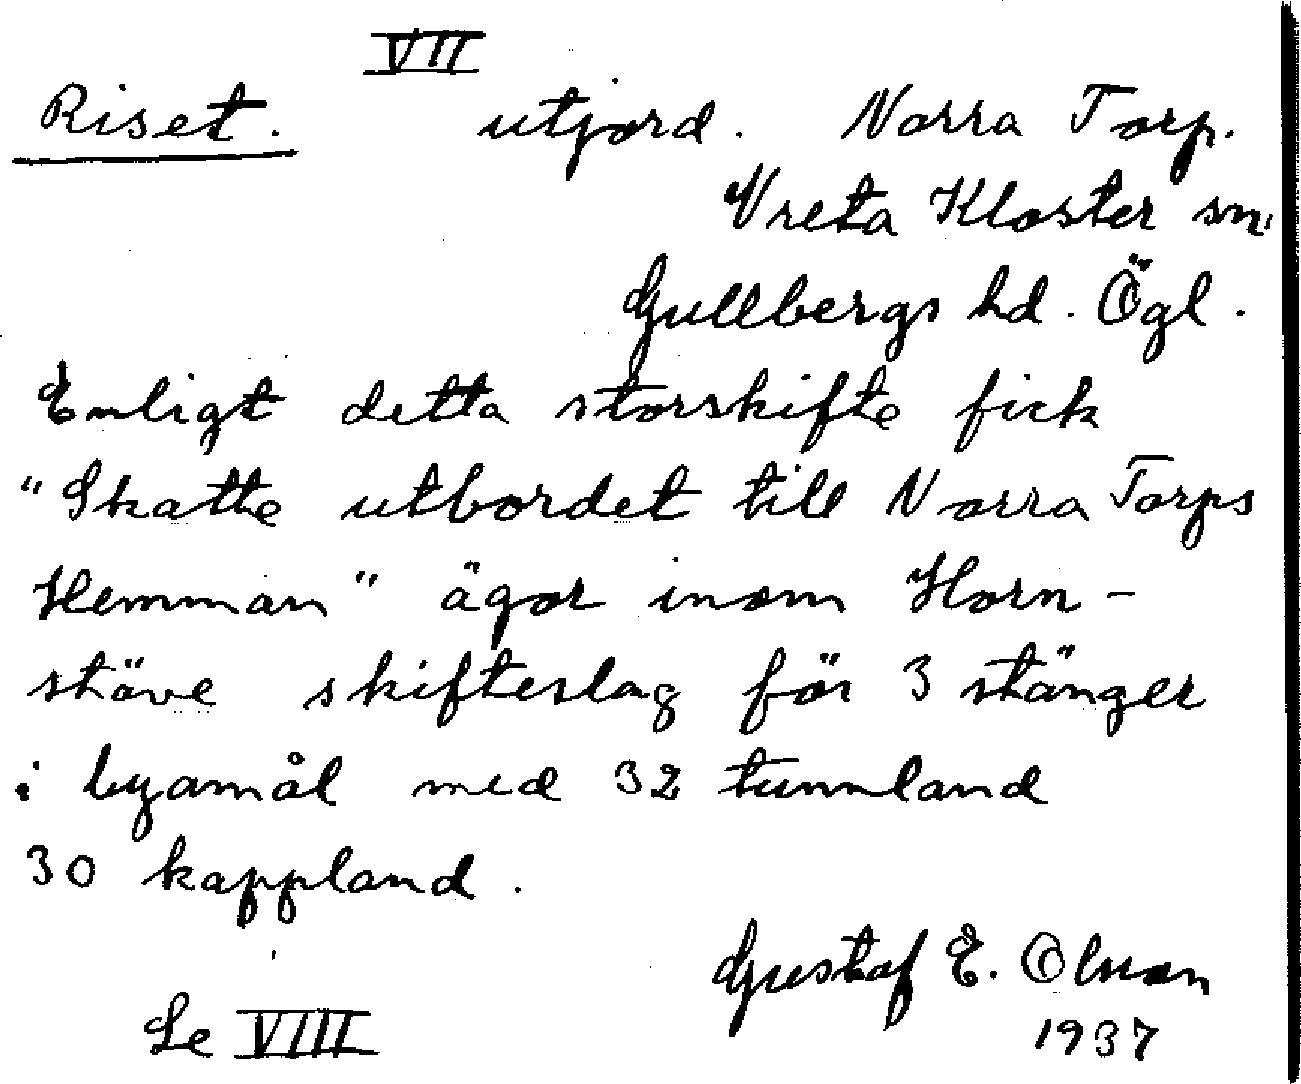 VII
Riset. utjord. Norra Torp.
Vreta Kloster sn.
Gullbergs hd. Ögl.
Enligt detta storskifte fick
"Skatte utbordet till Norra Torps
Hemman" ägor inom Horn-
stäve skifteslag för 3 stänger
i byamål med 32 tunnland
30 kappland.
Gustaf E. Olsson
Se VIII 1937